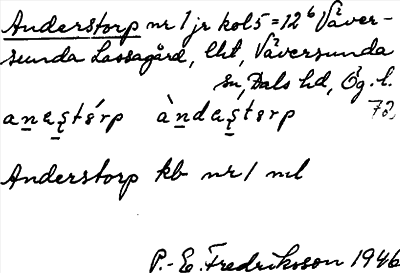 Anderstorp nr 1 jr kol 5 = 12⁶ Väver-
sunda Lassagård, Uht, Väversunda
sn, Dals hd, Ög. l.
78
Anderstorp kb nr 1 ml
P.-E. Fredriksson 1946